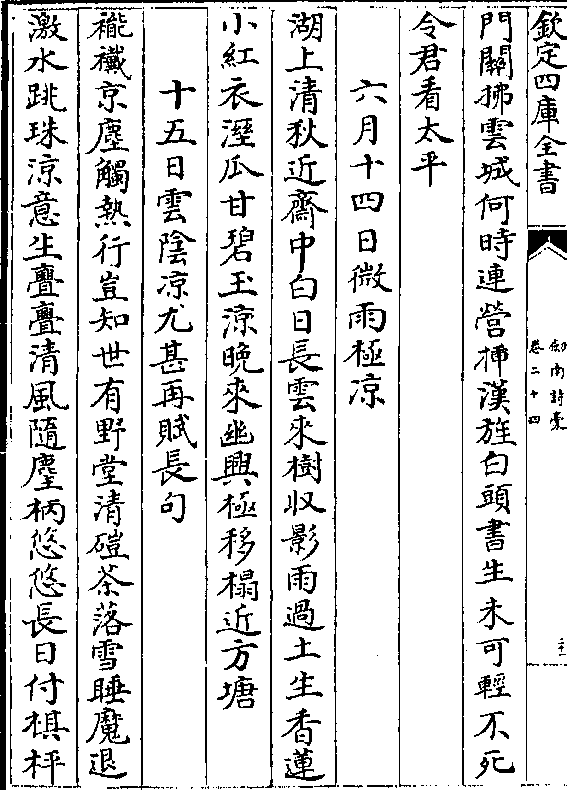 欽定四庫全書
劍南詩稾
卷二十四
門關拂雲城何時連營揷漢旌白頭書生未可輕不死
令君看太平
六月十四日微雨極凉
湖上清秋近齋中白日長雲來樹收影雨過土生香蓮
小紅衣溼瓜甘碧玉凉晚來幽興極移榻近方塘
十五日雲陰凉尤甚再賦長句
褦襶京塵觸熱行豈知世有野堂清磑茶落雪睡魔退
激水跳珠凉意生亹亹清風隨麈柄悠悠長日付棋枰